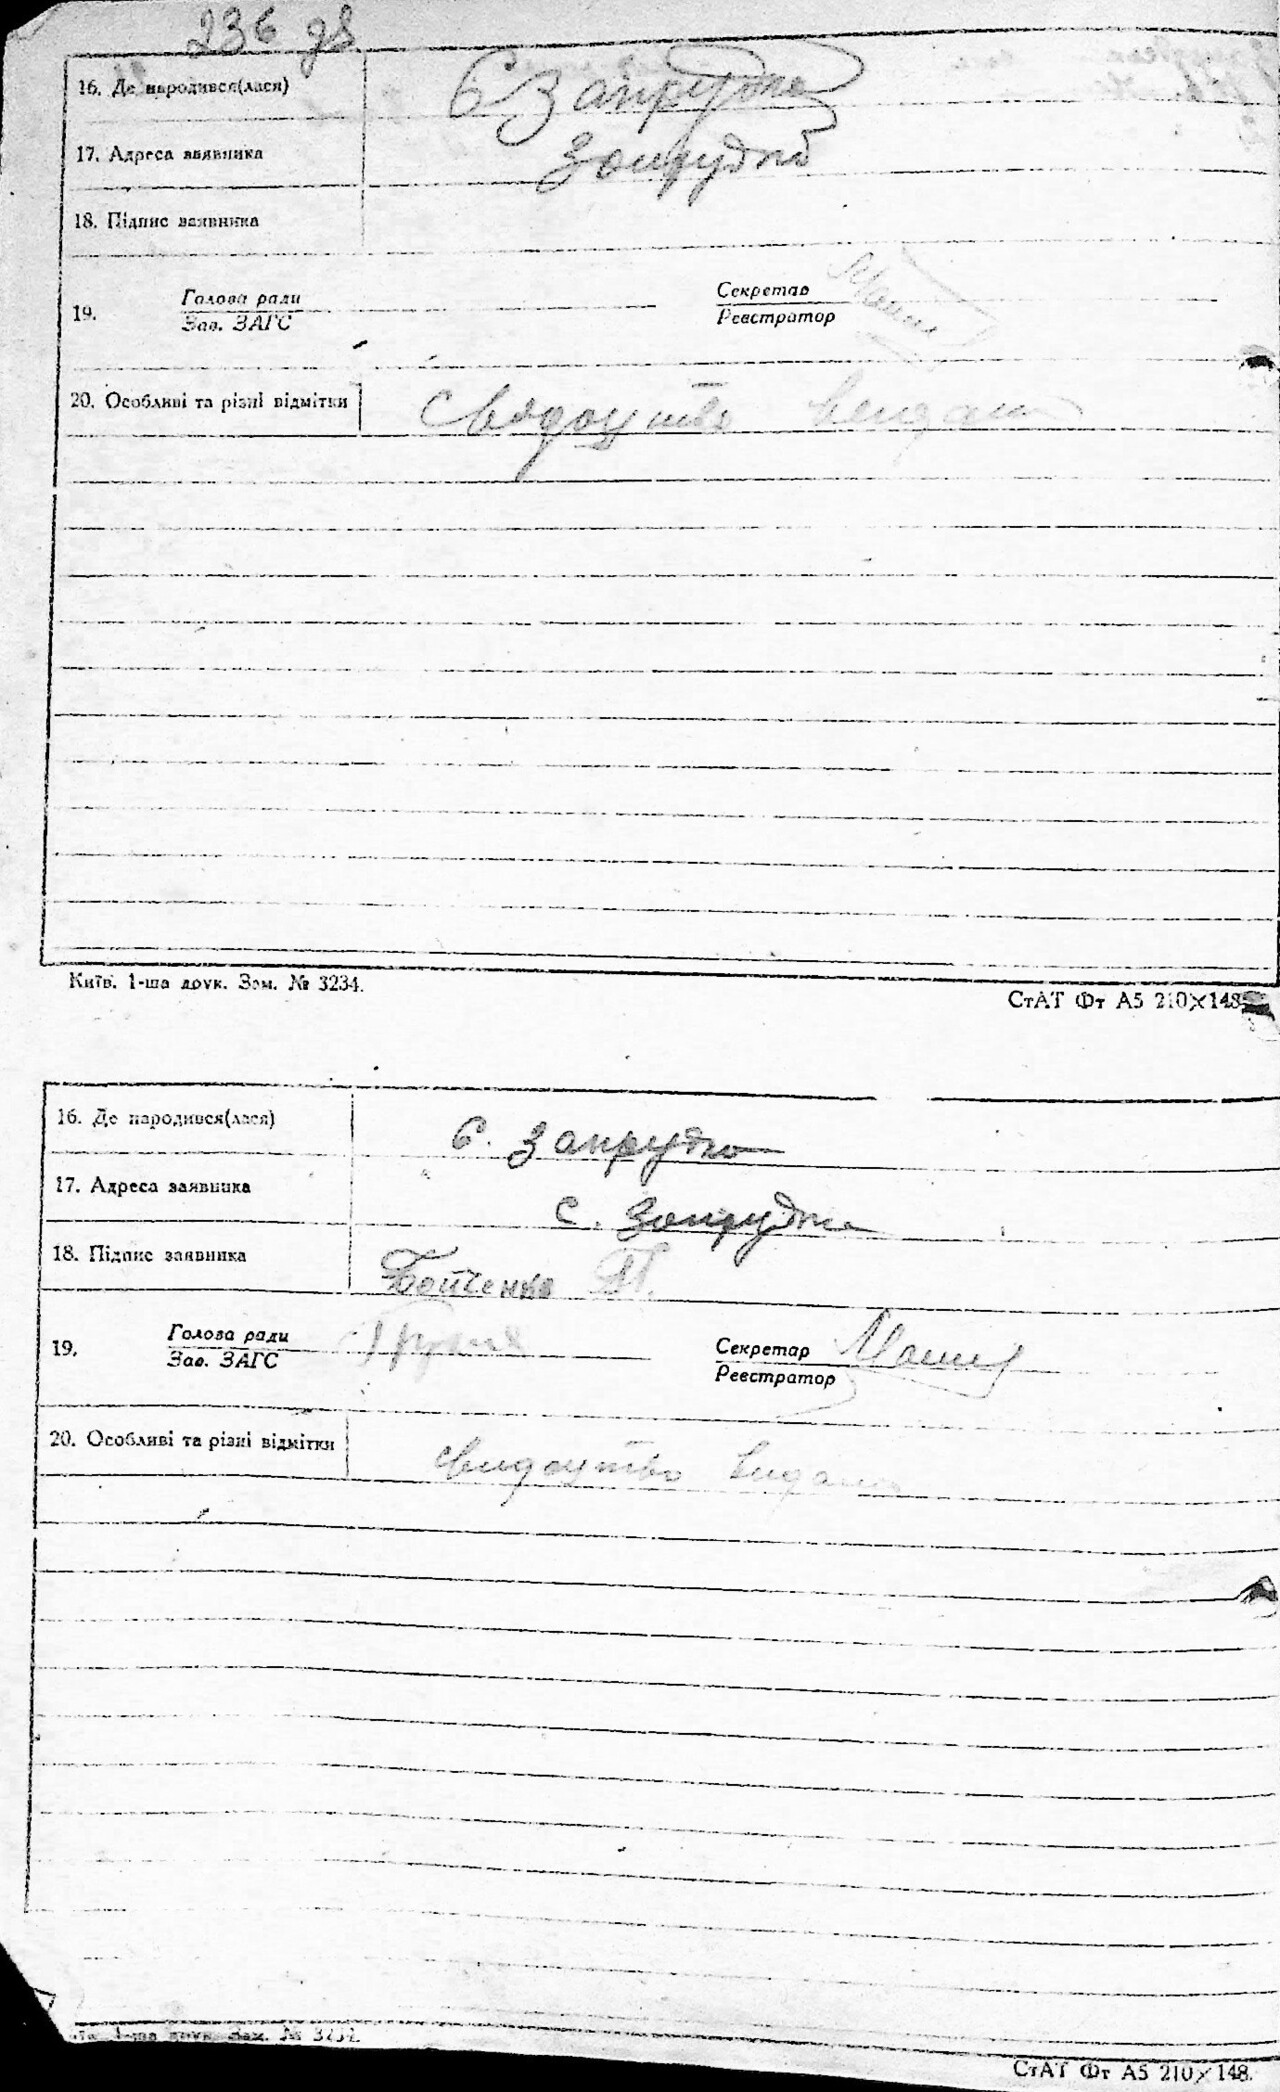 236 зв
16. Де народився(лася) с Запрудка
17. Адреса заявника Запрудка
18. Підпис заявника
Голова ради Секретар
19.
Зав. ЗАГС Реєстратор
20. Особливі та різні відмітки Свідоцтво видано
Київ. 1-ша друк. Зам. № 3234.
СтАТ Фт А5 210×148
16. Де народився(лася) с. Запрудка
17. Адреса заявника с. Запрудка
18. Підпис заявника Бойченко
Голова ради Секретар
19.
Зав. ЗАГС Реєстратор
20. Особливі та різні відмітки свидоцтво видано
1-ша друк. Зам. № 3234.
СтАТ Фт А5 210×148.